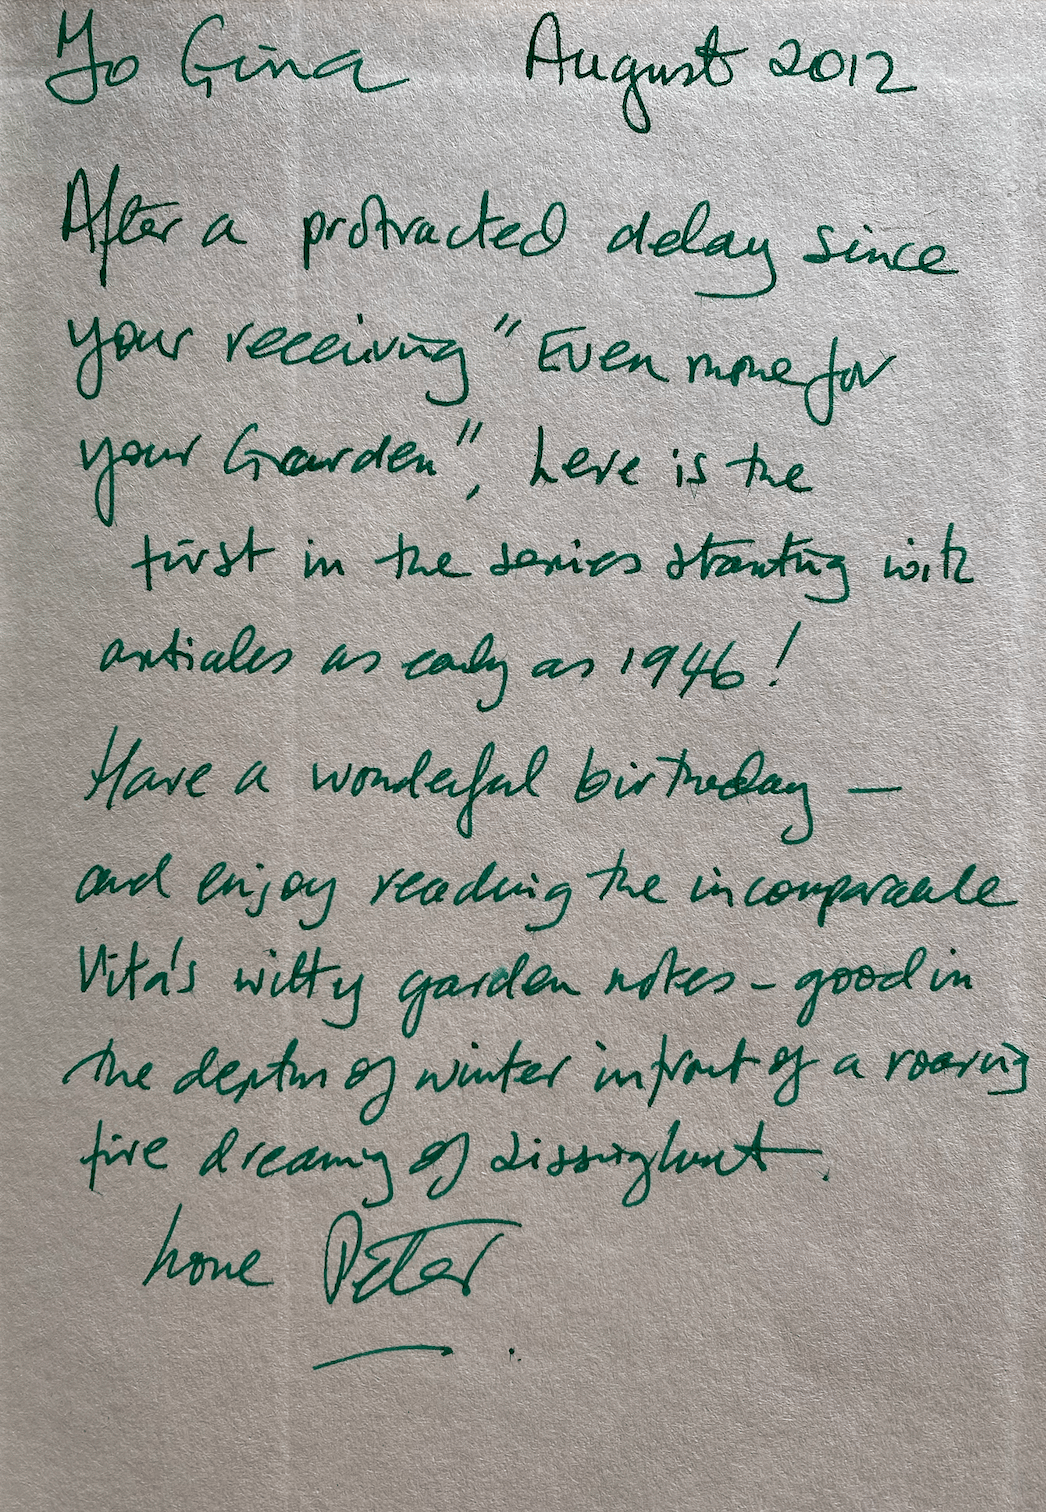 To Gina August 2012
After a protracted delay since
your receiving "Even more for
your Garden", here is the
first in the series starting with
articles as early as 1946!
Have a wonderful birthday —
and enjoy reading the incomparable
Vita's witty garden notes – good in
the depths of winter in front of a roaring
fire dreaming of Sissinghurst.
Love Peter